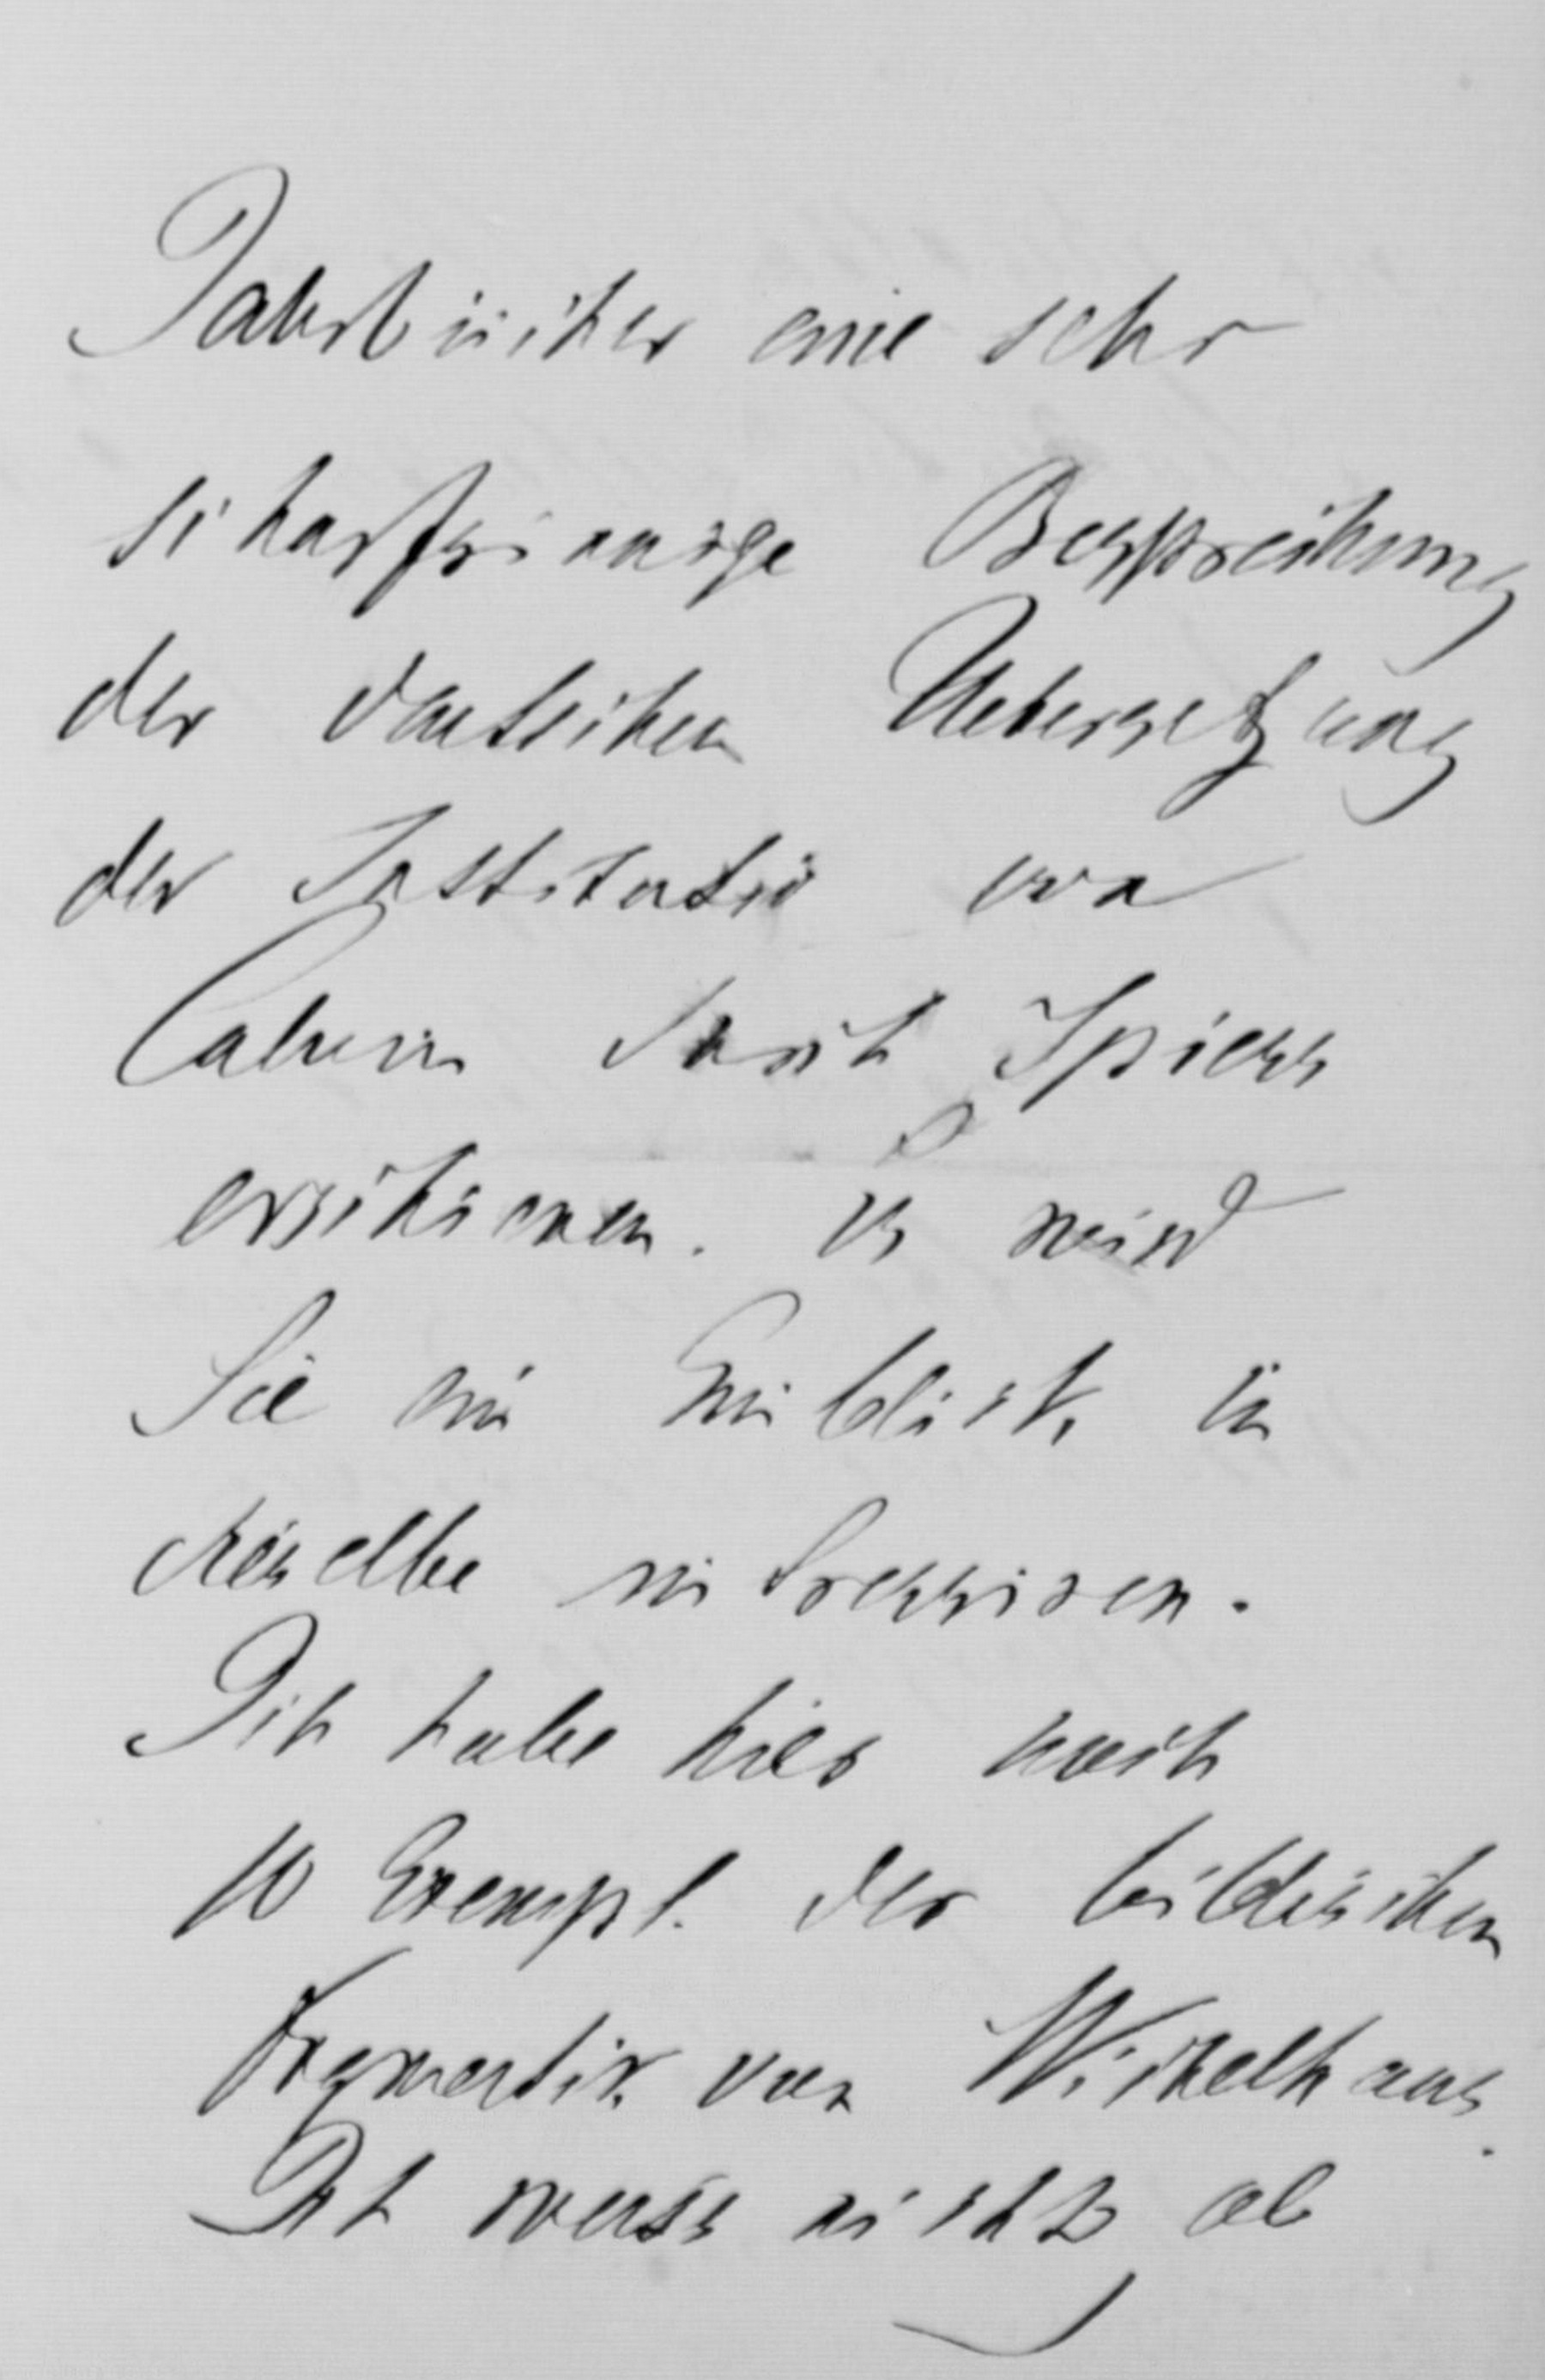 Jahrbücher eine sehr
scharfsinnige Besprechung
der deutschen Uebersetzung
der Institutio von
Calvin durch Spiess
erschienen. Es wird
Sie ein Einblick in
dieselbe interessiren.
Ich habe hier noch
10 Exempl. der biblischen
Dogmatik von Wichelhaus.
Ich weiss nicht ob